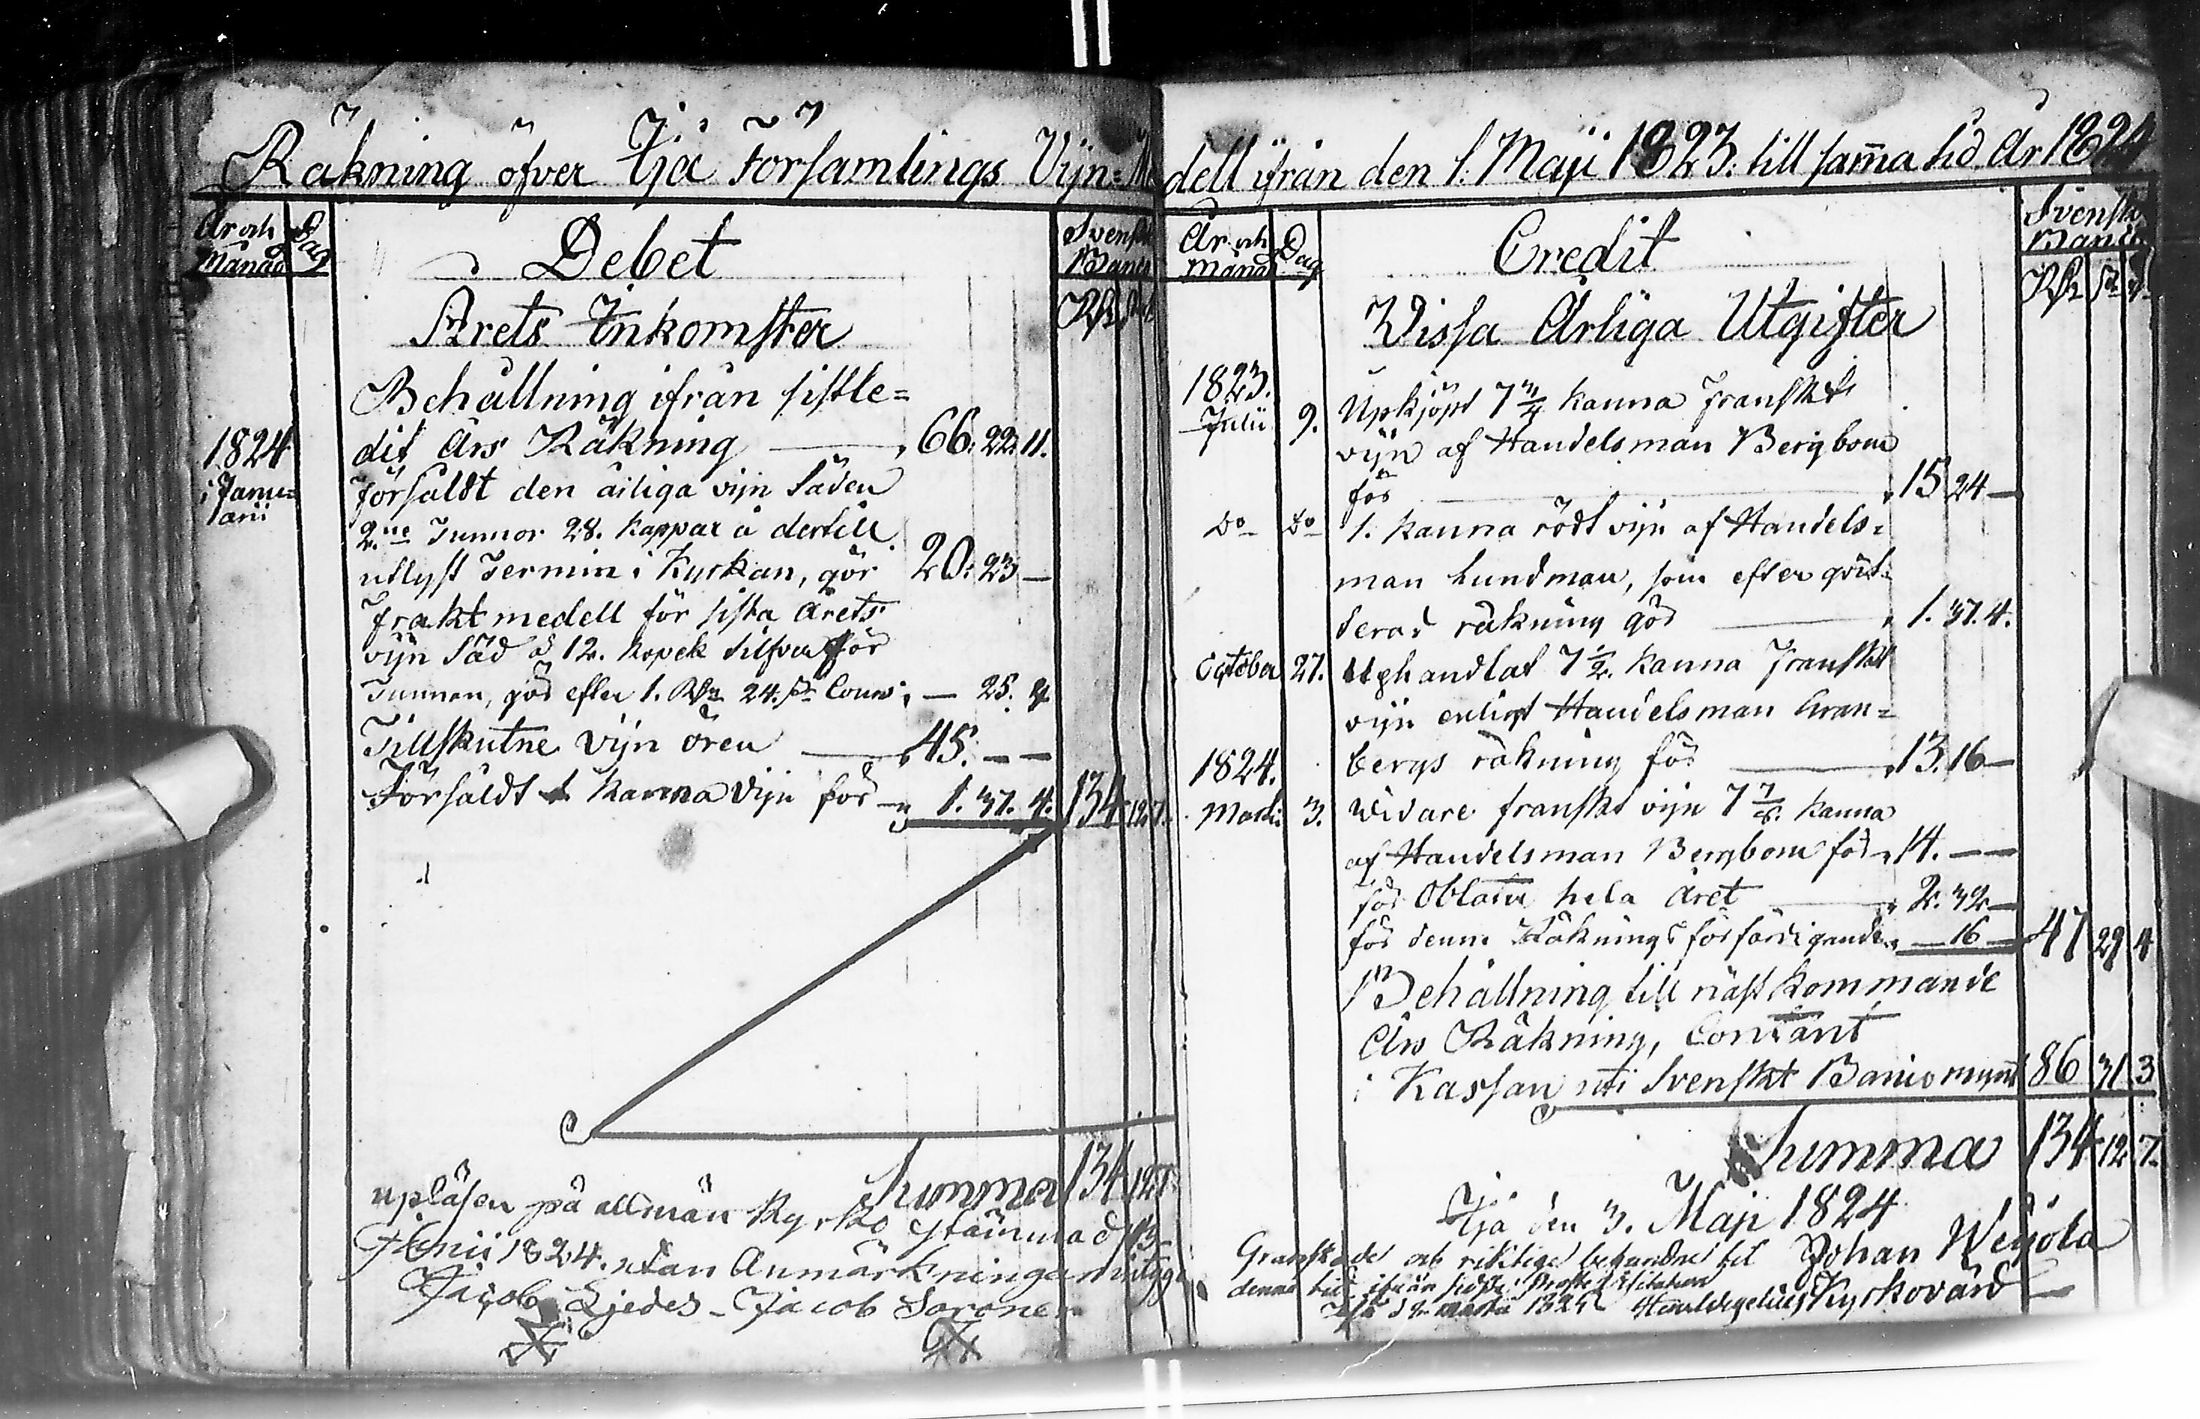 Räkning öfver Ijå Församlings Vijn-Me
År och
Månad
Dag
Debet
Svenskt
Banco
Rdr
Årets Inkomster
Behållning ifrån sistle=
dit Års Räkning 66. 22. 11.
1824
i Janu=
arii
försåldt den årliga vijn Säden
2.ne Tunnor 28. Kappar å dertill
utlyst Termin i Kyrkan, gör 20. 23 —
frakt medell för sista Årets
vijn Säd à 12. Kopek Silfver för
Tunnan, gör efter 1. Rdr 24. s. Cours — 25. 4
Tillskutne Vijn ören 45. — —
Försåldt 1 Kanna Vijn för 1. 37. 4. 134 12 7.
Summa 134 12 7
upläsen på allmän Kyrko Stämma d 13
Junii 1824. utan Anmärkningar intyga
Jacob Ljedes - Jacob Soronen
dell ifrån den 1. Maji 1823. till samma tid År 1824
År och
Månad
Dag
Credit
Svenskt
Banco
Rdr s r
Vissa Årliga Utgifter
1823.
Julii 9. Upkjöpt 7 3/4 Kanna Franskt
vijn af Handelsman Bergbom
för 15 24 —
Do Do 1. Kanna rödt vijn af Handels=
man Lundman, som efter qvit=
terad räkning gör 1. 37. 4.
October 27. Uphandlat 7 1/2. Kanna Franskt
vijn enligt Handelsman Gran=
bergs räkning för 13. 16 —
1824.
Martii 3. Widare franskt vijn 7 7/8. Kanna
af Handelsman Bergbom för 14. — —
för Oblater hela Året 2. 32 —
för denna Räknings förfärdigande — 16 — 47 29 4
Behållning till näst kommande
Års Räkning, Contant
i Kassan uti Svenskt Banco mynt 86 31 3
Summa 134 12 7.
Ijå den 3. Maji 1824
Johan Weijola
Kyrkovärd
Granskade och riktige befundne til
denna tid ifrån sidsta Prosts Visitation
Ijå d 9 Martii 1825